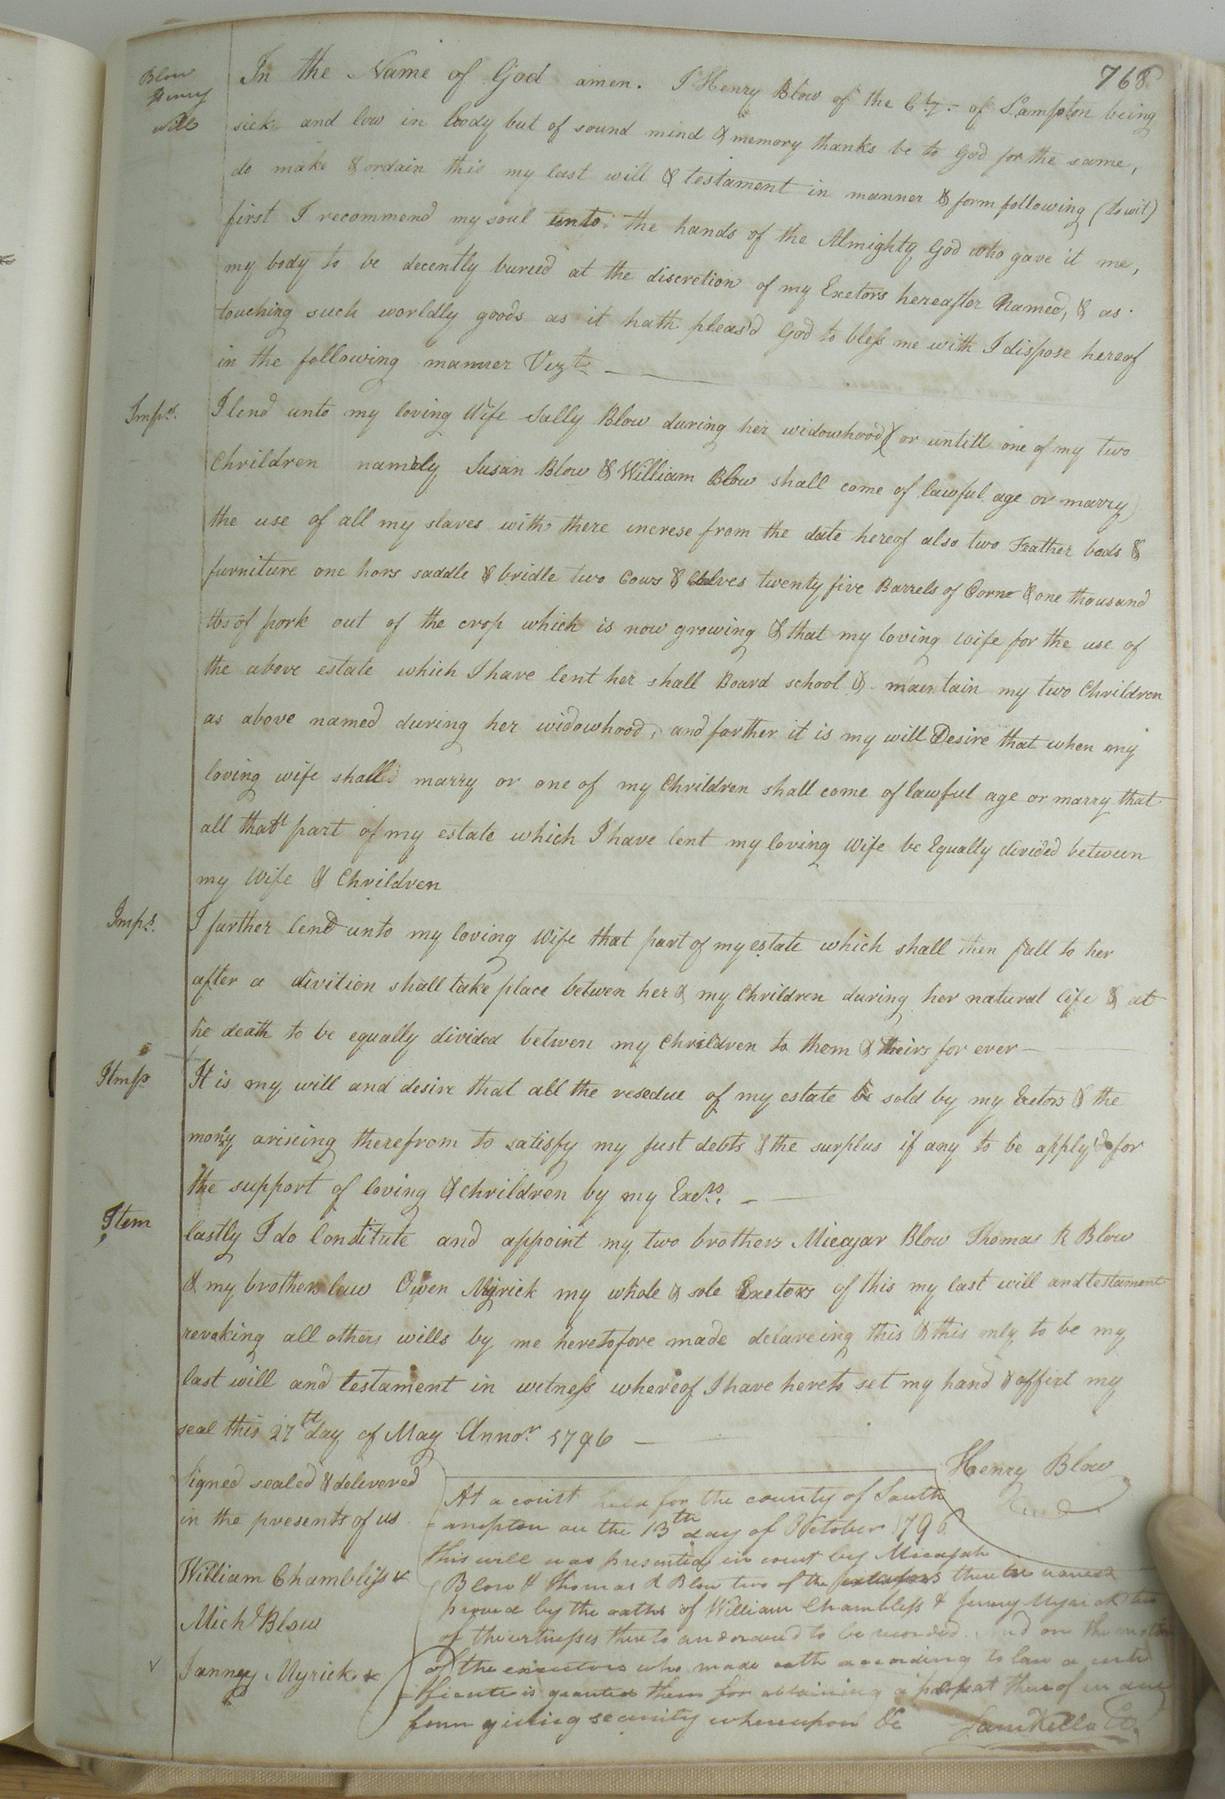 768
Blow
Henry
Will
In the Name of God amen. I Henry Blow of the Cty. of S.ampton being
sick and low in body but of sound mind & memory thanks be to God for the same,
do make & ordain this my last will & testament in manner & form following (to wit)
first I recommend my soul unto the hands of the Almighty God who gave it me,
my body to be decently buried at the discretion of my Exetors hereafter Named, & as
touching such worldly goods as it hath pleas'd God to bless me with I dispose hereof
in the following manner Vizt. —
Imps. I lend unto my loving Wife Sally Blow during her widowhood (or untill one of my two
Chrildren namely Susan Blow & William Blow shall come of lawful age or marry)
the use of all my slaves with there increse from the date hereof also two Feather beds &
furniture one hors saddle & bridle two Cows & Calves twenty five Barrels of Corne & one thousand
lbs of pork out of the crop which is now growing & that my loving wife for the use of
the above estate which I have lent her shall Board school & maintain my two Chrildren
as above named during her widowhood, and farther it is my will Desire that when my
loving wife shall marry or one of my Chrildren shall come of lawful age or marry that
all that part of my estate which I have lent my loving Wife be Equally divided between
my Wife & Chrildren
Imps. I further lend unto my loving Wife that part of my estate which shall then fall to her
after a divition shall take place betwen her & my Chrildren during her natural life & at
he death to be equally divided betwen my Chrildren to them & theirs for ever —
Itmss It is my will and desire that all the resedue of my estate be sold by my Exetors & the
mony ariseing therefrom to satisfy my just debts & the surplus if any to be apply'd for
the support of loving & chrildren by my Exers. —
Item lastly I do Constitute and appoint my two brothers Micajar Blow Thomas R Blow
& my brother law Owen Myrick my whole & sole Exetors of this my last will and testament
revoking all others wills by me heretofore made delareing this & this only to be my
last will and testament in witness whereof I have hereto set my hand & affixt my
seal this 27th day of May Annor. 1796 —
Henry Blow
Signed sealed & delivered
in the presents of us
William Chambliss x
Michl Blow
Janney Myrick x
At a court held for the county of South
ampton on the 13th day of October 1796
this will was presented in court by Micajah
Blow & Thomas R Blow two of the executors therein named
proved by the oaths of William Chambless & Jenney Myrick two
of the witnesses thereto and ordered to be recorded. And on the motion
of the executors who made oath according to law a certi
ficate is granted them for obtaining a probat thereof in due
form giving security whereupon &c Saml Kello Ct.